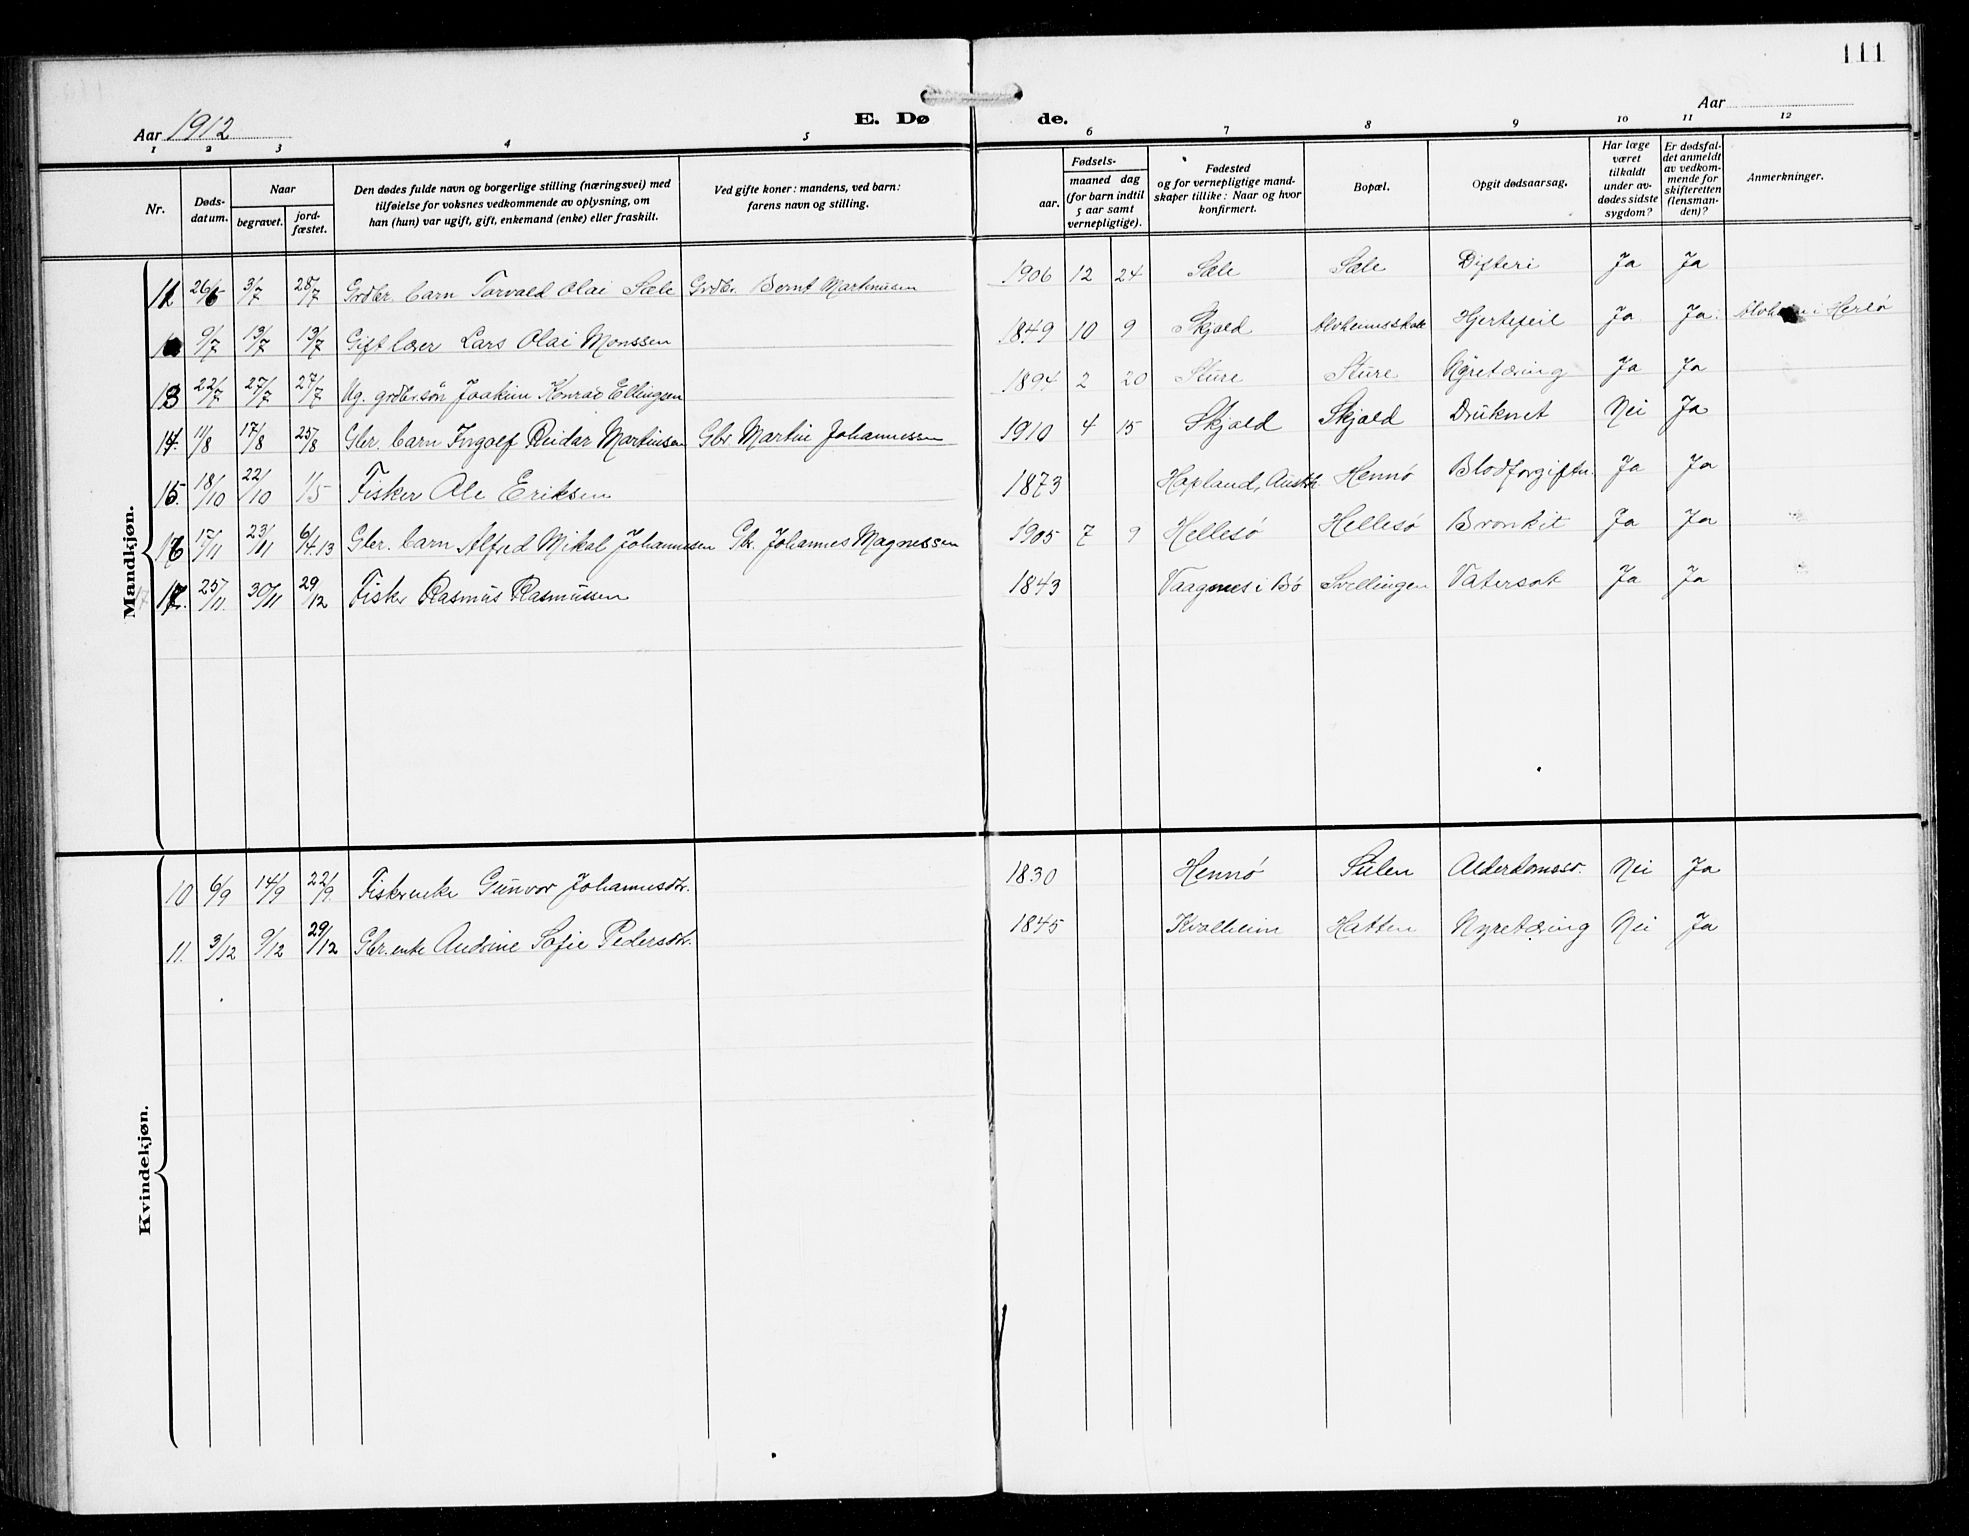 111
Aar 1912 E. Dø de. Aar
1 2 3 4 5 6 7 8 9 10 11 12
Nr. Døds-datum. Naar begravet. jord-fæstet. Den dødes fulde navn og borgerlige stilling (næringsvei) med tilføielse for voksnes vedkommende av oplysning, om han (hun) var ugift, gift, enkemand (enke) eller fraskilt. Ved gifte koner: mandens, ved barn: farens navn og stilling. Fødsels- aar. maaned dag (for barn indtil 5 aar samt vernepligtige). Fødested og for vernepligtige mand-skaper tillike: Naar og hvor konfirmert. Bopæl. Opgit dødsaarsag. Har læge været tilkaldt under av-dødes sidste sygdom? Er dødsfal-det anmeldt av vedkom-mende for skifteretten (lensman-den)? Anmerkninger.
Mandkjøn.
11 26/6 3/7 28/7 Grdbr. barn Torvald Olai Sæle Grdbr. Bernt Martinusen 1906 12 24 Sæle Sæle Difteri Ja Ja
9/7 13/7 13/7 Gift lærer Lars Olai Monssen 1849 10 9 Skjold Hjertefeil Ja Ja i Herlø
13 22/7 27/7 27/7 Ug. grdbr.søn Joakim Konrad Ellingsen 1894 2 20 Sture Sture Nyretæring Ja Ja
14. 11/8 17/8 25/8 Gbr. barn Ingolf Reidar Martinsen Gbr. Martin Johannessen 1910 4 15 Skjold Skjold Druknet Nei Ja
15. 18/10 22/10 1/5 Fisker Ole Eriksen 1873 Hopland, Austrh. Hennø Blodforgiftn. Ja Ja
16 17/11 23/11 6/4.13 Gbr. barn Alfred Mikal Johannesen Gbr. Johannes Magnessen 1905 7 9 Hellesø Hellesø Bronkit Ja Ja
17 17. 25/11. 30/11 29/12 Fisker Rasmus Rasmussen 1843 Vaagnes i Bø Svellingen Vatersot Ja Ja
Kvindekjøn.
10 6/9 14/9 22/9. Fiskerenke Gunvor Johannesdtr. 1830 Hennø Sulen Alderdomssv. Nei Ja
11. 3/12 9/12 29/12 Gbr. enke Andrine Sofie Pedersdtr. 1845 Kvalheim Hatten Nyretæring Nei Ja